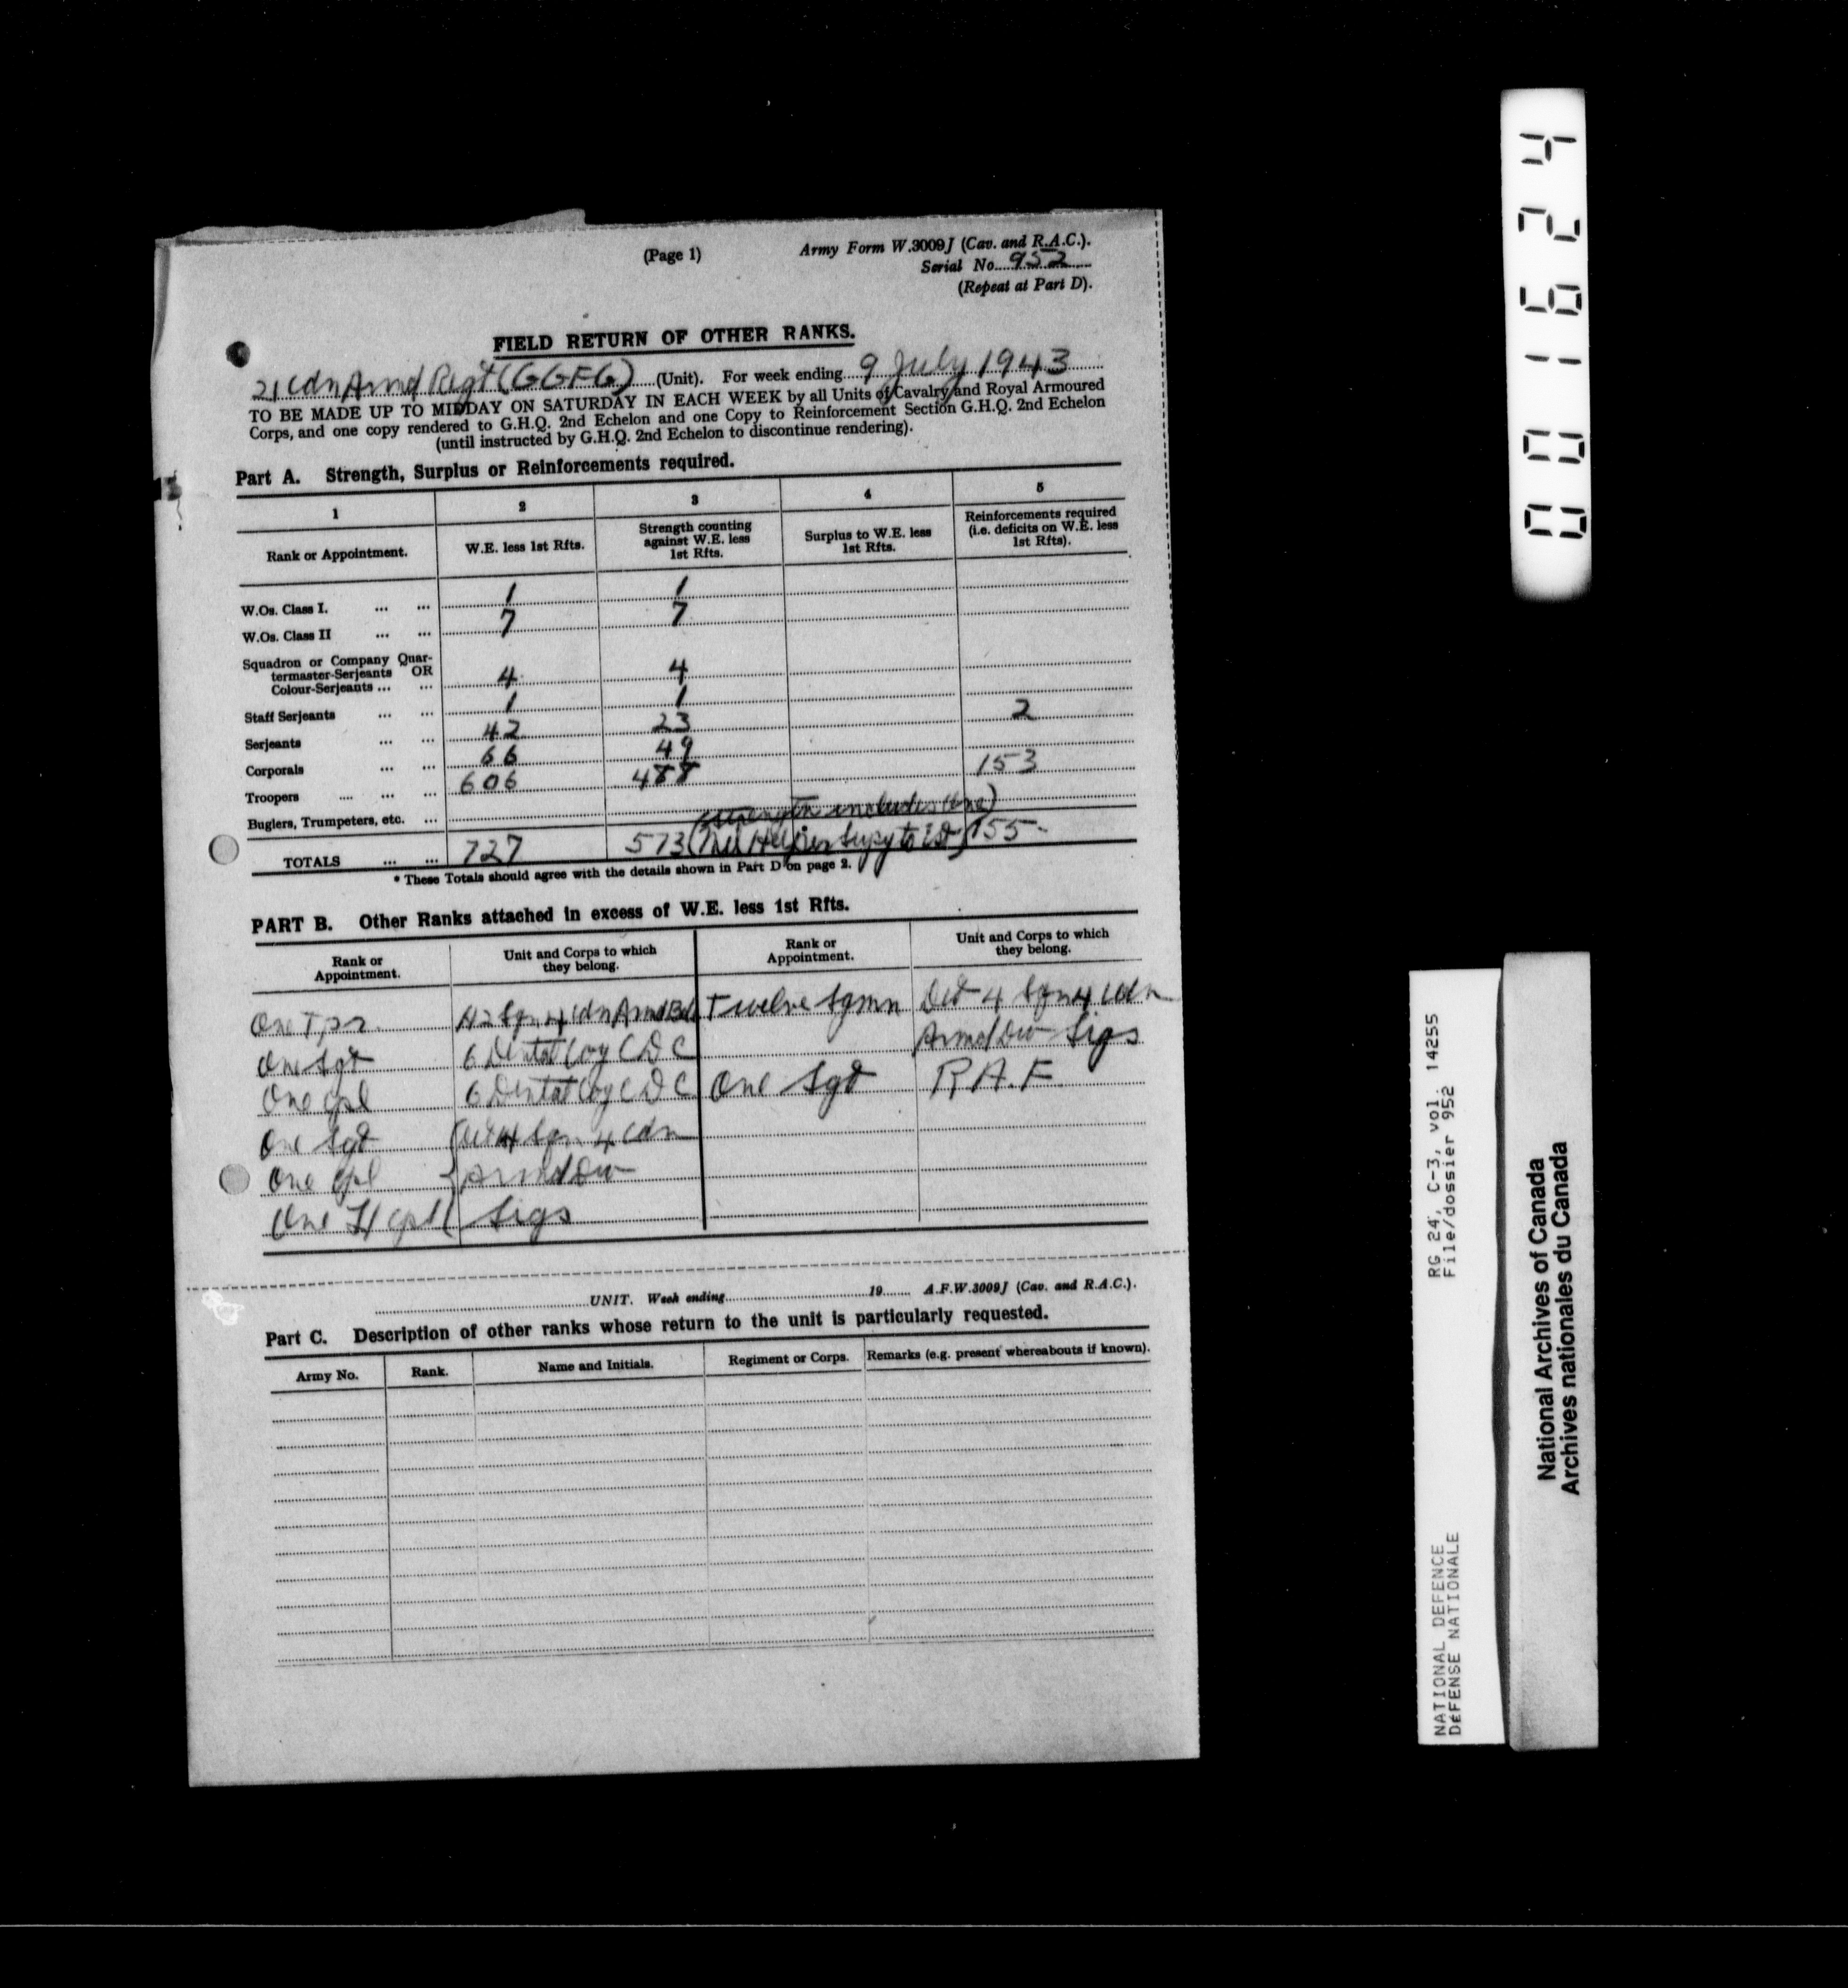 (Page 1)
Army Form W.3009J (Cav. and R.A.C.).
Serial No. 952
(Repeat at Part D).
FIELD RETURN OF OTHER RANKS.
21 Cdn Armd Regt (GGFG) (Unit). For week ending 9 July 1943
TO BE MADE UP TO MIDDAY ON SATURDAY IN EACH WEEK by all Units of Cavalry and Royal Armoured
Corps, and one copy rendered to G.H.Q. 2nd Echelon and one Copy to Reinforcement Section G.H.Q. 2nd Echelon
(until instructed by G.H.Q. 2nd Echelon to discontinue rendering).
Part A. Strength, Surplus or Reinforcements required.
1 2 3 4 5
Rank or Appointment. W.E. less 1st Rfts. Strength counting against W.E. less 1st Rfts. Surplus to W.E. less 1st Rfts. Reinforcements required (i.e. deficits on W.E. less 1st Rfts).
W.Os. Class I. ... ... 1 1
W.Os. Class II ... ... 7 7
Squadron or Company Quar-
termaster-Serjeants OR
Colour-Serjeants ... ... 4 4
Staff Serjeants ... ... 1 1
Serjeants ... ... 42 23 2
Corporals ... ... 66 49
Troopers .... ... ... 606 488 153
Buglers, Trumpeters, etc. ... (strength includes one)
TOTALS ... ... 727 573 155
* These Totals should agree with the details shown in Part D on page 2.
PART B. Other Ranks attached in excess of W.E. less 1st Rfts.
Rank or Appointment. Unit and Corps to which they belong. Rank or Appointment. Unit and Corps to which they belong.
One Tpr. H2 Sqn 4 Cdn Armd Bde Twelve Sgmn Det 4 Sqn 4 Cdn
One Sgt 6 Dental Coy CDC Armd Div Sigs
One Cpl 6 Dental Coy CDC One Sgt R.A.F.
One Sgt Det 4 Sqn 4 Cdn
One Cpl Armd Div
One L/Cpl Sigs
UNIT. Week ending 19 A.F.W.3009J (Cav. and R.A.C.).
Part C. Description of other ranks whose return to the unit is particularly requested.
Army No. Rank. Name and Initials. Regiment or Corps. Remarks (e.g. present whereabouts if known).
001624
RG 24, C-3, vol. 14255
File/dossier 952
NATIONAL DEFENCE
DÉFENSE NATIONALE
National Archives of Canada
Archives nationales du Canada